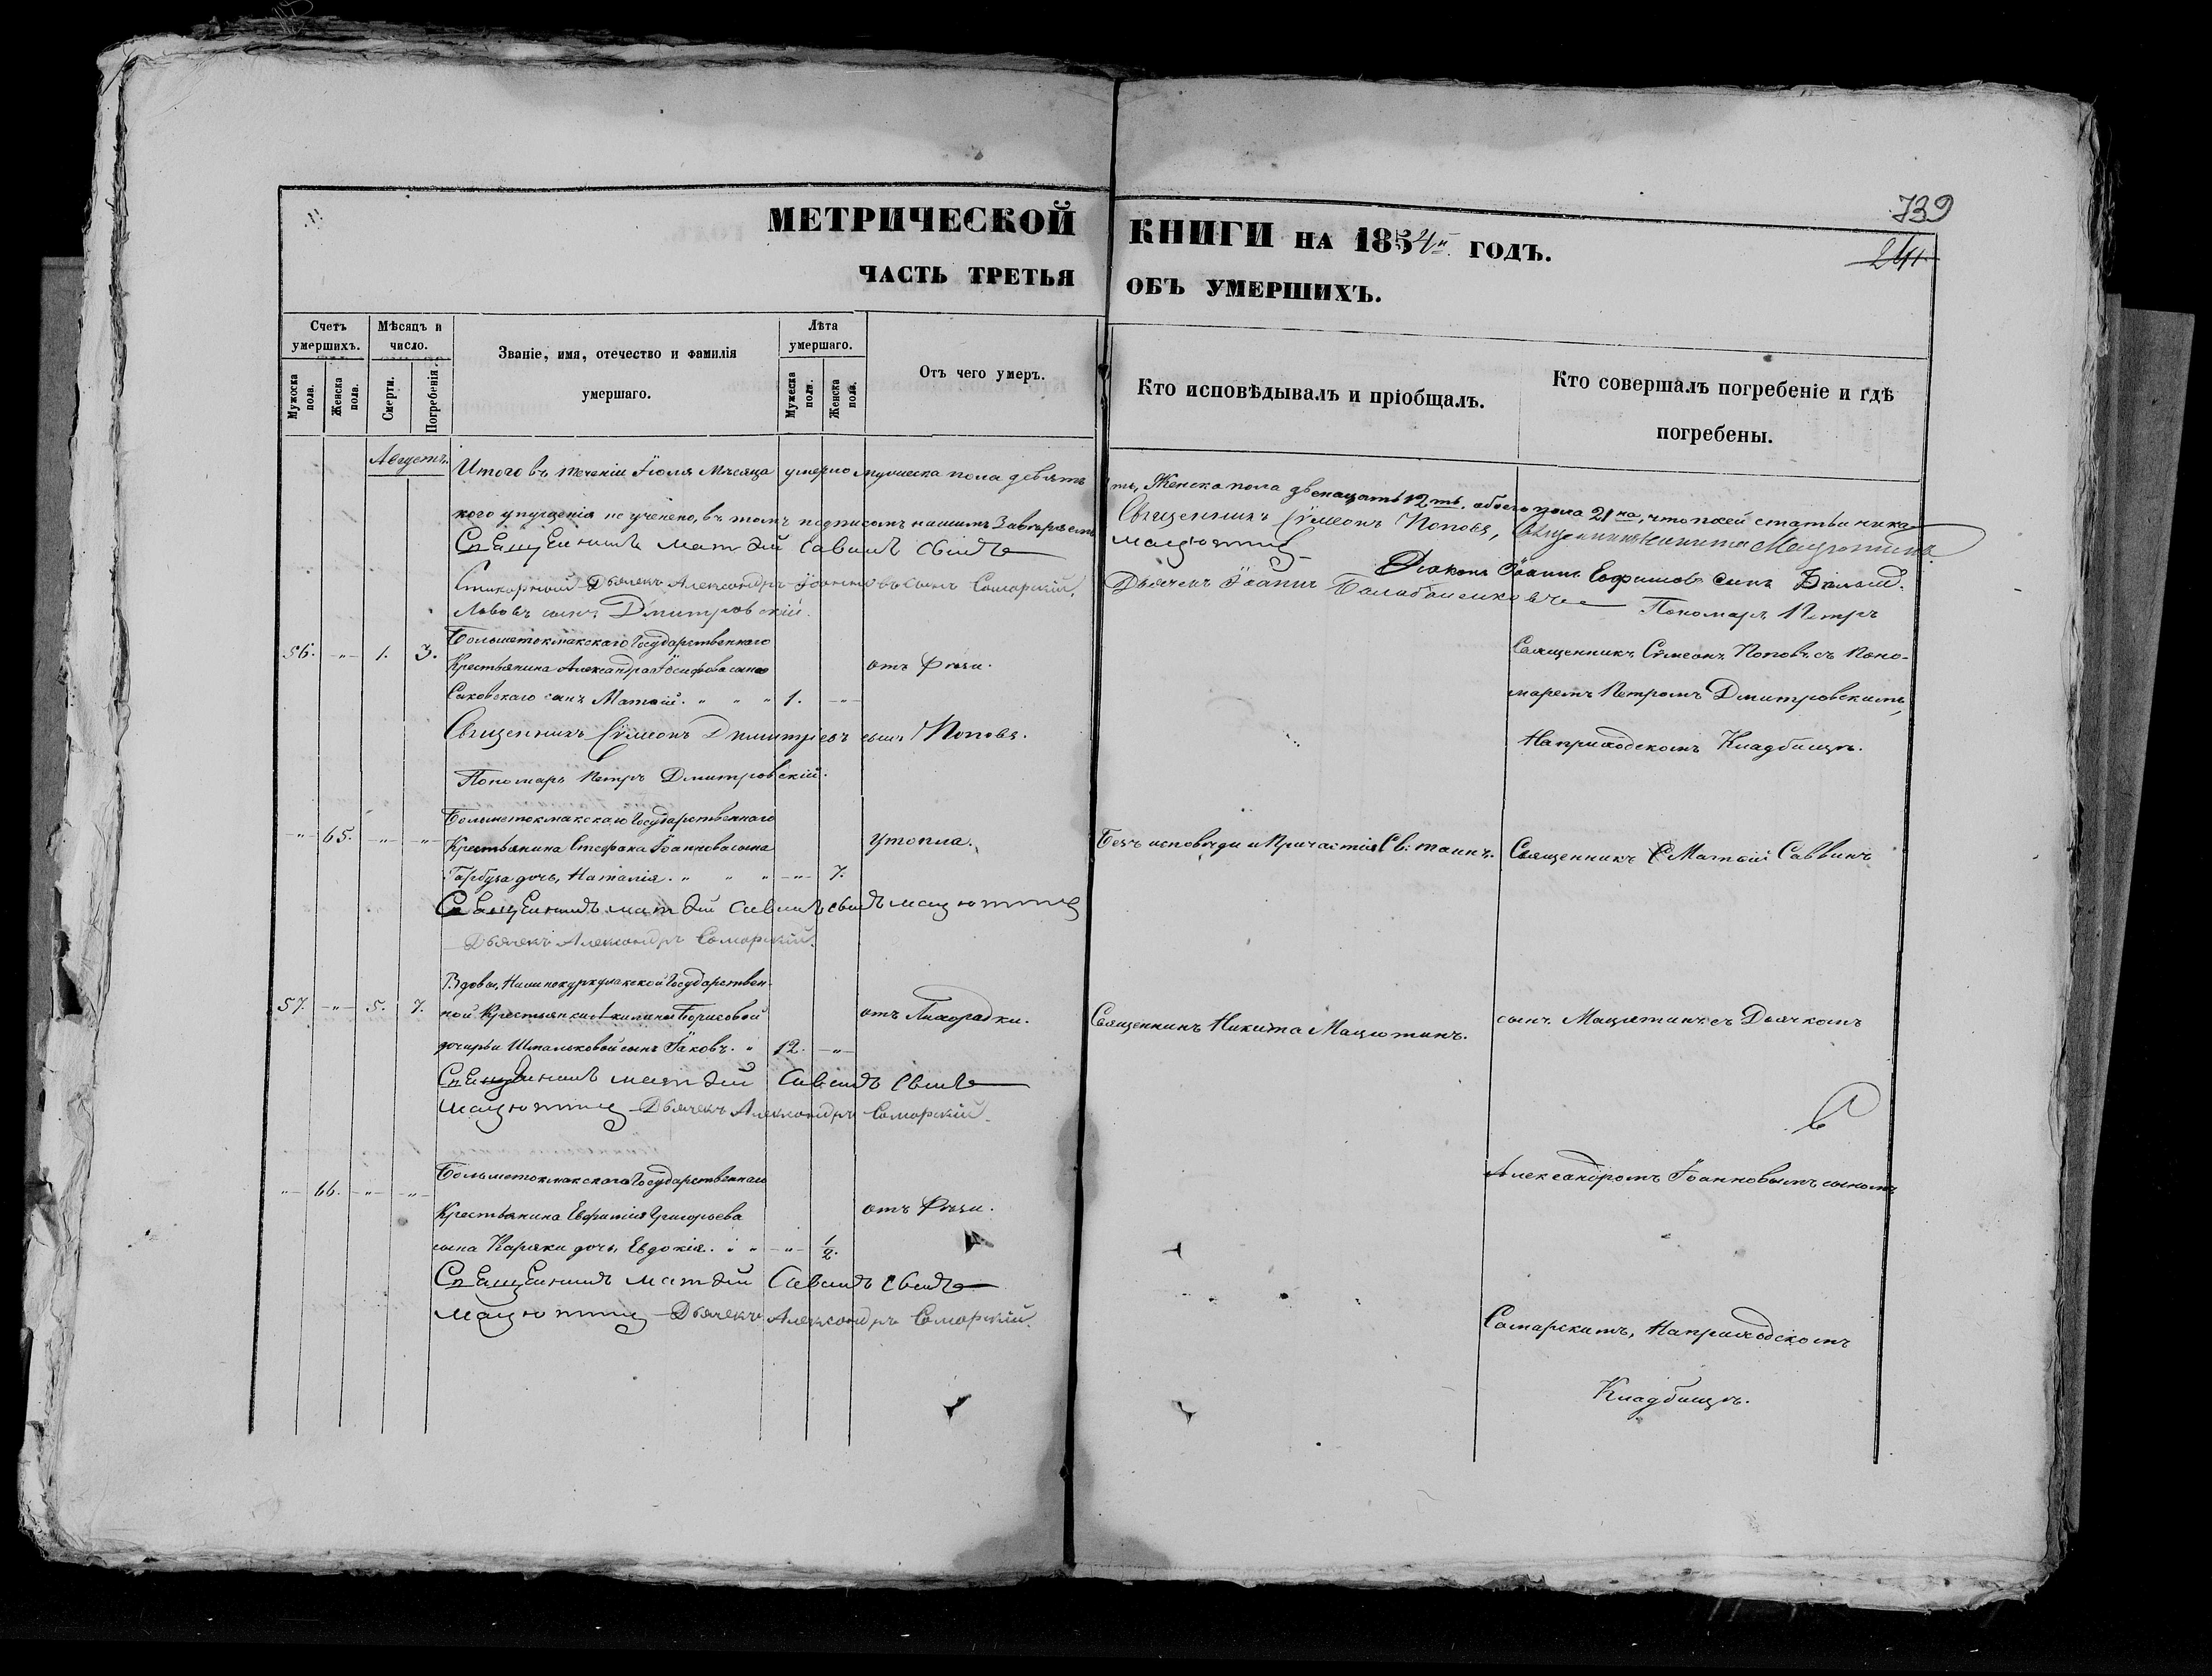 739
МЕТРИЧЕСКОЙ КНИГИ НА 1854й ГОДЪ.
241.
ЧАСТЬ ТРЕТЬЯ ОБЪ УМЕРШИХЪ.
Счетъ умершихъ.
Мѣсяцъ и число.
Званіе, имя, отечество и фамилія умершаго.
Лѣта умершаго.
Отъ чего умеръ.
Кто исповѣдывалъ и пріобщалъ.
Кто совершалъ погребеніе и гдѣ погребены.
Мужеска пола.
Женска пола.
Смерти.
Погребенія.
Мужеска пола.
Женска пола.
Августъ.
Итого въ теченіи Іюля Мѣсяца умерло мужеска пола девять
Женска пола двенацать 12ть, обоего пола 21на, что по сей статьи ника
кого упущенія не учинено, въ томъ подписомъ нашимъ Завѣряемъ
Священникъ Сѵмеонъ Поповъ, Священникъ Никита Мацютинъ
Священникъ Матѳій Саввинъ сынъ
Мацютинъ
Діаконъ Іоаннъ Евфимовъ сынъ Бѣлый.
Стихарный Дьячекъ Александръ Іоанновъ сынъ Самарскій.
Дьячекъ Іоаннъ
Пономарь Петръ
Львовъ сынъ Дмитровскій.
56. -"- 1. 3.
Большетокмакскаго Государственнаго
Крестьянина Александра Іосифова сына
отъ Рѣзи.
Саковскаго сынъ Матѳій. " " " 1. -"-
Священникъ Сѵмеонъ Поповъ съ Поно-
маремъ Петромъ Дмитровскимъ,
На приходскомъ Кладбищѣ.
Священникъ Сѵмеонъ Дмитріевъ сынъ Поповъ.
Пономарь Петръ Дмитровскій.
-"- 65. -"- -"-
Большетокмакскаго Государственнаго
Крестьянина Стефана Іоаннова сына
утопла.
Безъ исповѣди и Причастія Св: таинъ.
Священникъ Матѳій Саввинъ
Гарбуза дочь, Наталія. " " " -"- 7.
Священникъ Матѳій Саввинъ сынъ Мацютинъ
Дьячекъ Александръ Самарскій.
57. -"- 5. 7.
Вдовы, Государствен-
ной Крестьянки Акилины Борисовой
отъ Лихорадки.
Священникъ Никита Мацютинъ.
сынъ Мацютинъ съ Дьячкомъ
дочерьи сынъ Іаковъ. " 12. -"-
Священникъ Матѳій Саввинъ сынъ
Мацютинъ Дьячекъ Александръ Самарскій.
-"- 66. -"- -"-
Большетокмакскаго Государственнаго
Крестьянина Евфимія Григорьева
отъ Рѣзи.
Александромъ Іоанновымъ сыномъ
сына Каряки дочь, Евдокія. " " -"- 1/2.
Священникъ Матѳій Саввинъ сынъ
Мацютинъ Дьячекъ Александръ Самарскій.
Самарскимъ, На приходскомъ
Кладбищѣ.